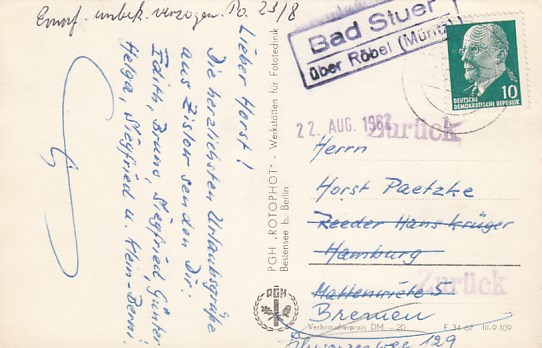 Empf. unbek. verzogen. Po. 23/8
Bad Stuer
über Röbel (Müritz)
10
DEUTSCHE
DEMOKRATISCHE REPUBLIK
22. AUG. 1962
Zurück
Lieber Horst!
Die herzlichsten Urlaubsgrüße
aus Zislow senden Dir:
Edith, Bruno, Siegfried, Günter
Helga, Siegfried u. Klein-Berni.
PGH „ROTOPHOT“ - Werkstätten für Fototechnik
Bestensee b. Berlin
PGH
Herrn
Horst Paetzke
Reeder Hans Krüger
Hamburg
Zurück
Mattenwiete 5
Bremen
Verbraucherpreis DM -,20
F 34 62 III-9-109
129